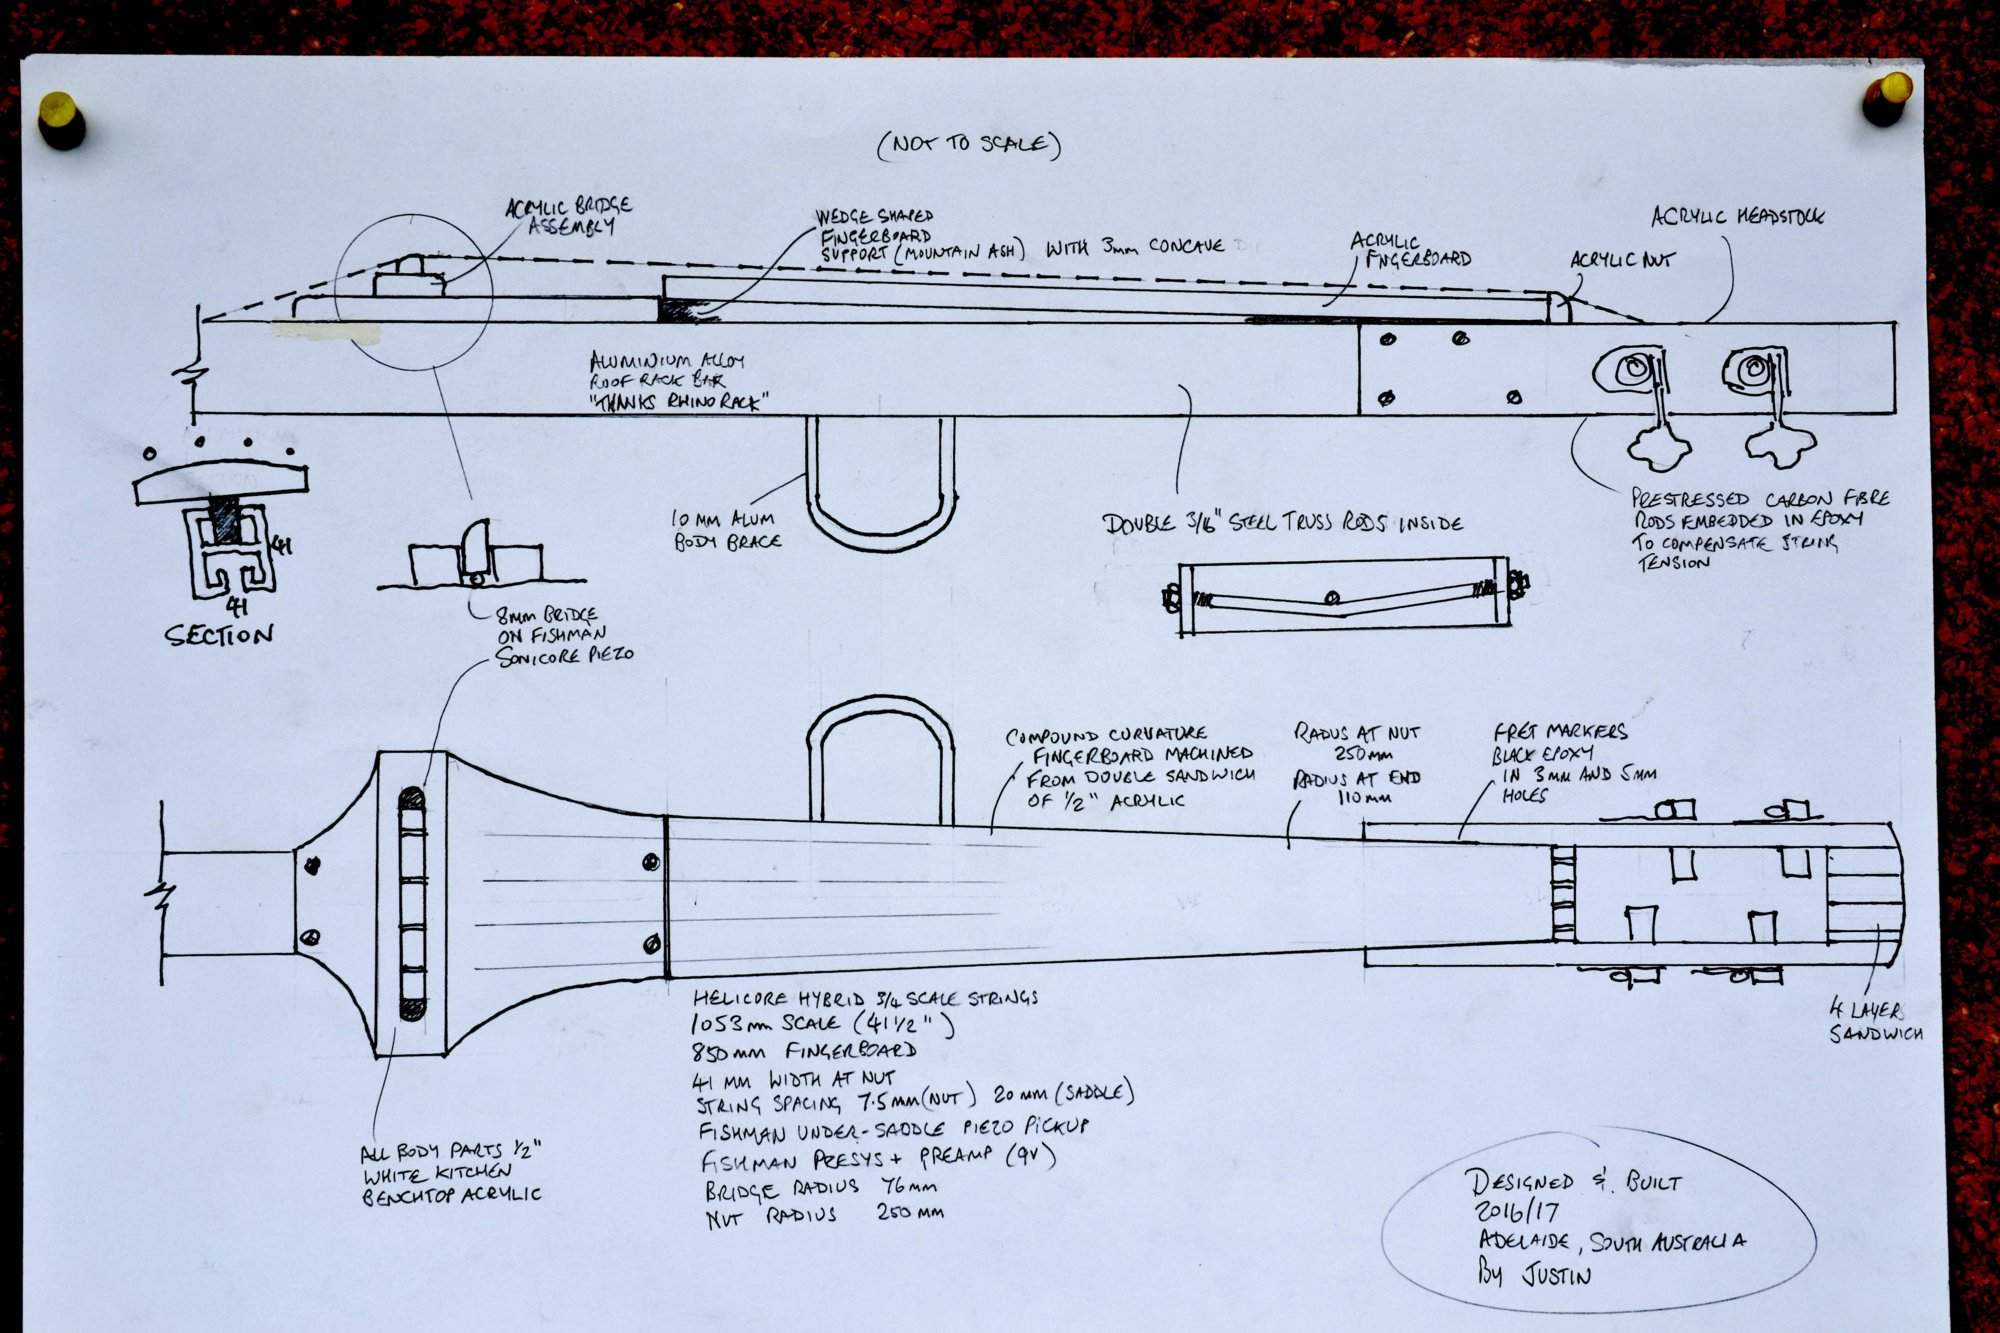 (NOT TO SCALE)
ACRYLIC BRIDGE
ASSEMBLY
WEDGE SHAPED
FINGERBOARD
SUPPORT (MOUNTAIN ASH) WITH 3mm CONCAVE
ACRYLIC
FINGERBOARD
ACRYLIC NUT
ACRYLIC HEADSTOCK
ALUMINIUM ALLOY
ROOF RACK BAR
"THANKS RHINO RACK"
41
41
SECTION
8mm BRIDGE
ON FISHMAN
SONICORE PIEZO
10 MM ALUM
BODY BRACE
DOUBLE 3/16" STEEL TRUSS RODS INSIDE
PRESTRESSED CARBON FIBRE
RODS EMBEDDED IN EPOXY
TO COMPENSATE STRING
TENSION
COMPOUND CURVATURE
FINGERBOARD MACHINED
FROM DOUBLE SANDWICH
OF 1/2" ACRYLIC
RADIUS AT NUT
250mm
RADIUS AT END
110mm
FRET MARKERS
BLACK EPOXY
IN 3mm AND 5mm
HOLES
4 LAYER
SANDWICH
ALL BODY PARTS 1/2"
WHITE KITCHEN
BENCHTOP ACRYLIC
HELICORE HYBRID 3/4 SCALE STRINGS
1053mm SCALE (41 1/2")
850mm FINGERBOARD
41 MM WIDTH AT NUT
STRING SPACING 7.5mm (NUT) 20mm (SADDLE)
FISHMAN UNDER-SADDLE PIEZO PICKUP
FISHMAN PRESYS + PREAMP (9V)
BRIDGE RADIUS 76mm
NUT RADIUS 250mm
DESIGNED & BUILT
2016/17
ADELAIDE, SOUTH AUSTRALIA
BY JUSTIN